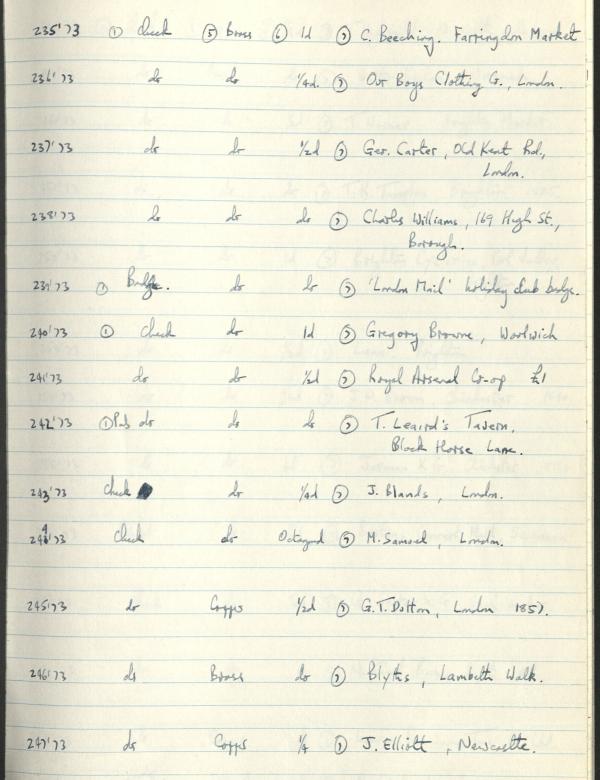 235'73 ① Check ⑤ Brass ⑥ 1d ⑦ C. Beeching. Farringdon Market
236'73 do do 1/4d. ⑦ Our Boys Clothing Co., London.
237'73 do do 1/2d ⑦ Geo. Carter, Old Kent Rd.,
London.
238'73 do do do ⑦ Charles Williams, 169 High St.,
Borough.
239'73 ① Badge. do do ⑦ 'London Mail' holiday club badge.
240'73 ① Check do 1d ⑦ Gregory Browne, Woolwich
241'73 do do 1/2d ⑦ Royal Arsenal Co-op £1
242'73 ① Pub do do do ⑦ T. Leaird's Tavern,
Black Horse Lane.
243'73 Check do 1/4d ⑦ J. Blands, London.
244'73 Check do Octagonal ⑦ M. Samuel, London.
245'73 do Copper 1/2d ⑦ G.T. Dutton, London 1857.
246'73 do Brass do ⑦ Blyths, Lambeth Walk.
247'73 do Copper 1/4 ⑦ J. Elliott, Newcastle.